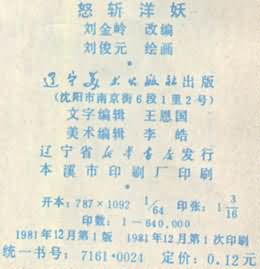 怒斩洋妖
刘金岭 改编
刘俊元 绘画
辽宁美术出版社出版
(沈阳市南京街6段1里2号)
文字编辑 王恩国
美术编辑 李皓
辽宁省新华书店发行
本溪市印刷厂印刷
开本:787×1092 1/64 印张:1 3/16
印数:1—640,000
1981年12月第1版 1981年12月第1次印刷
统一书号:7161·0024 定价:0.12元